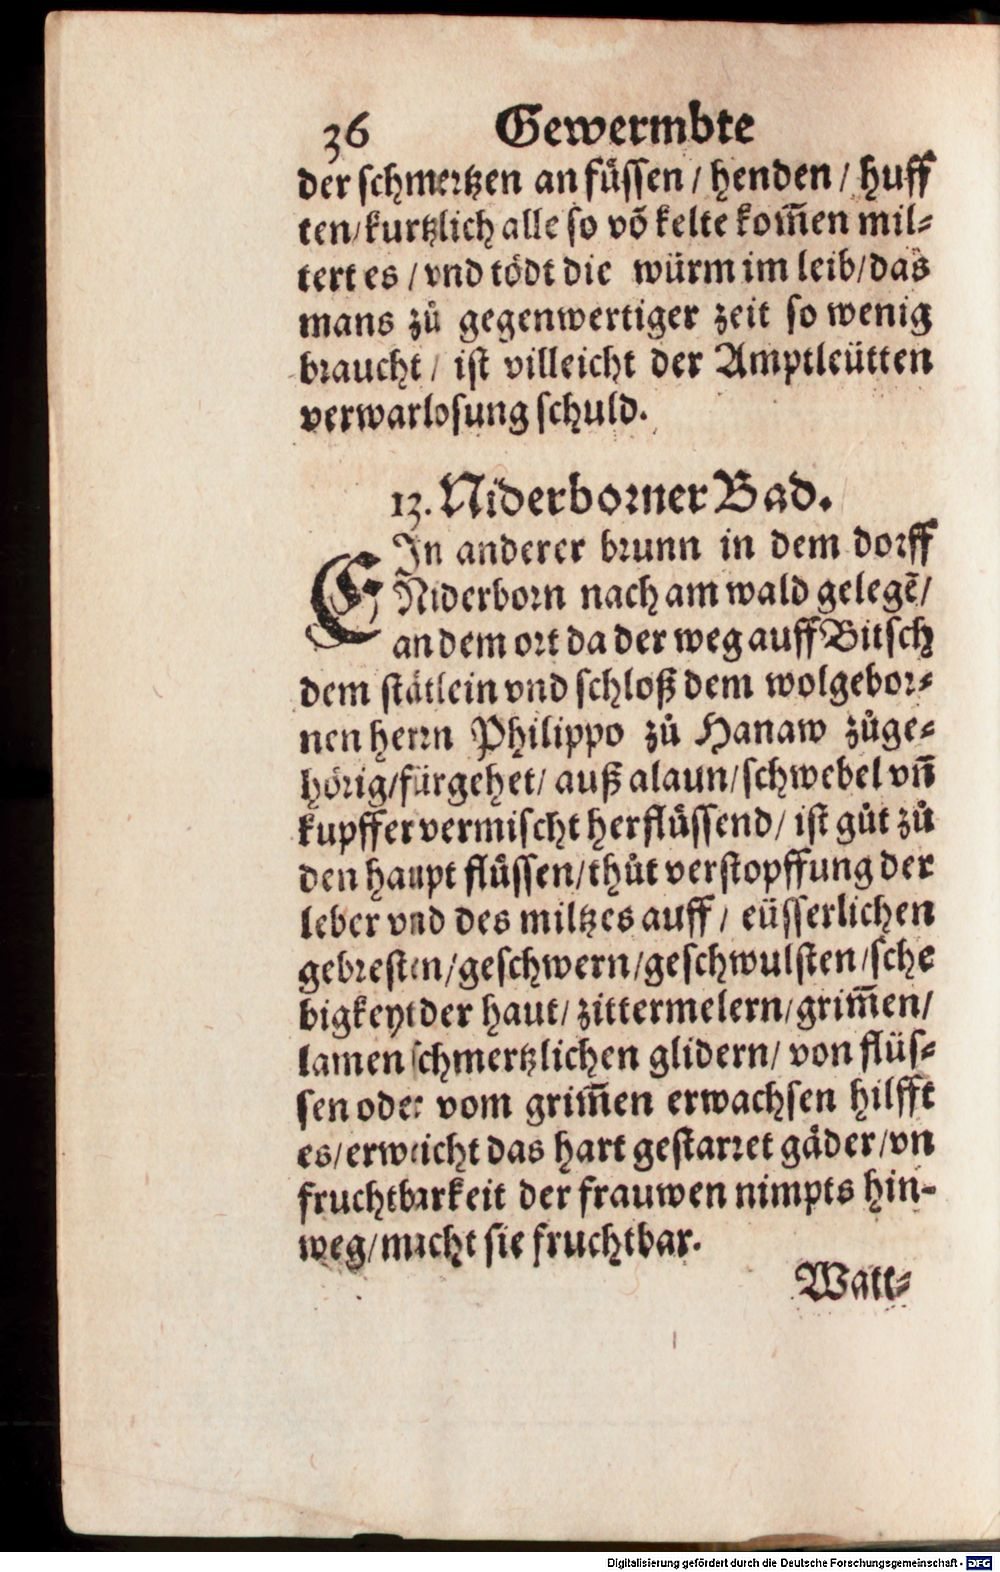 36 Gewermbte
der schmertzen an füssen / henden / huff
ten / kurtzlich alle so võ kelte kom̃en mil⸗
tert es / vnd tödt die würm im leib / das
mans zů gegenwertiger zeit so wenig
braucht / ist villeicht der Amptleütten
verwarlosung schuld.
13. Niderborner Bad.
EJn anderer brunn in dem dorff
Niderborn nach am wald gelegẽ /
an dem ort da der weg auff Bitsch
dem stätlein vnd schloß dem wolgebor⸗
nen herrn Philippo zů Hanaw zůge⸗
hörig / fürgehet / auß alaun / schwebel vñ
kupffer vermischt herflüssend / ist gůt zů
den haupt flüssen / thůt verstopffung der
leber vnd des miltzes auff / eüsserlichen
gebresten / geschwern / geschwulsten / sche
bigkeyt der haut / zittermelern / grim̃en /
lamen schmertzlichen glidern / von flüs⸗
sen oder vom grim̃en erwachsen hilfft
es / erweicht das hart gestarret gäder / vn
fruchtbarkeit der frauwen nimpts hin⸗
weg / macht sie fruchtbar.
Watt⸗
Digitalisierung gefördert durch die Deutsche Forschungsgemeinschaft - DFG